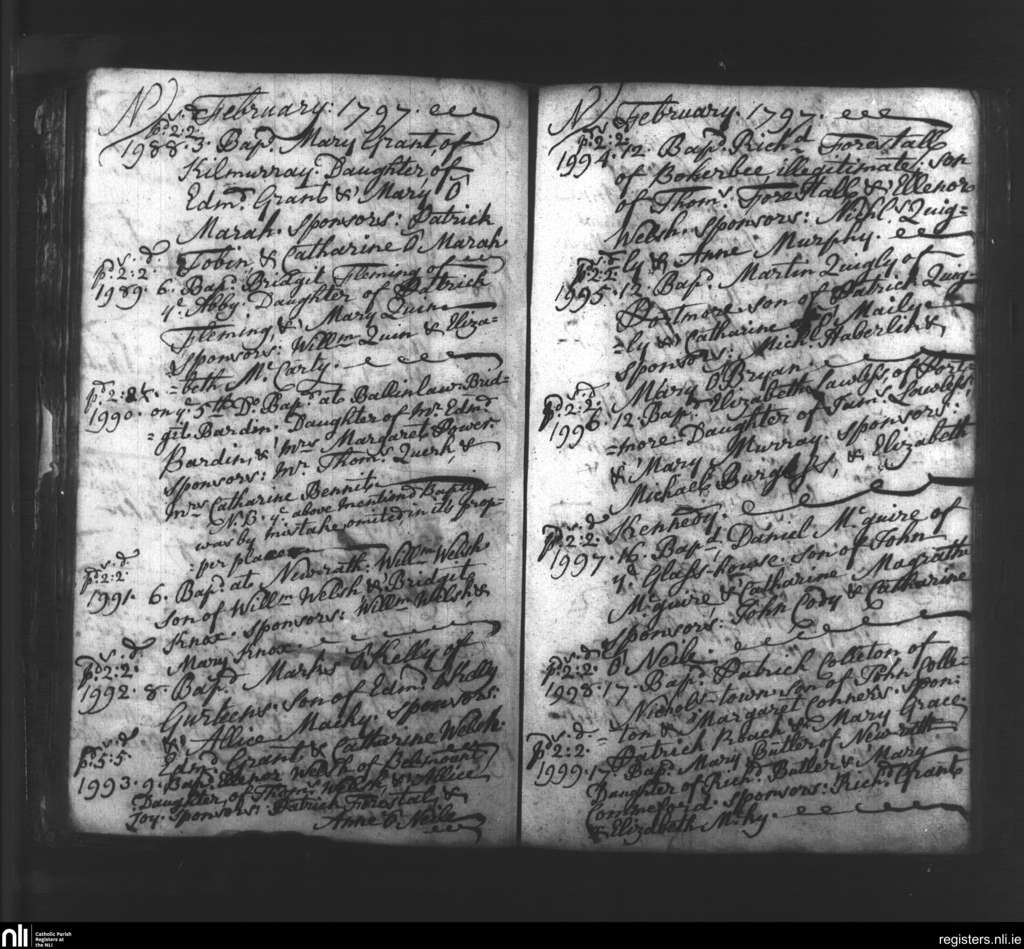 No. February: 1797.
s. d
pd. 2:2
1988. 3. Bapd. Mary Grant, of
Kilmurray. Daughter of
Edmd. Grant & Mary O
Marah. Sponsors: Patrick
Tobin & Catharine O Marah
s. d
pd. 2:2.
1989. 6. Bapd. Bridgit Fleming of
ye. Abby. Daughter of Patrick
Fleming, & Mary Quin
Sponsors: Willm. Quin & Eliza=
=beth Mc.Carty.
s. d
pd. 2:
1990. on ye. 5th. Do. Bapd. at Ballinlaw. Brid=
=git Bardin. Daughter of Mr. Edmd.
Bardin, & Mrs. Margaret Power.
Sponsors: Mr. Thoms. Querk, &
Mrs. Catharine Bennit
N.B. ye. above mentiond Baptism
was by mistake omited in its prop=
=per place
s. d
pd. 2:2.
1991. 6. Bapd. at Newrath. Willm. Welsh
son of Willm. Welsh & Bridgit
Knox. Sponsors: Willm. Welsh, &
Mary Knox.
s. d
pd. 2:2.
1992. 8. Bapd. Marks O Kelly of
Gurteens. son of Edmd. O Kelly
& Allice Macky. Sponsors:
Edmd. Grant & Catharine Welsh.
s. d
pd. 5:5.
1993. 9. Bapd. Ellenor Welsh of Belmount
Daughter of Thoms. Welsh, & Allice
Joy. Sponsors: Patrick Forestal, &
Anne O Neile
No. February. 1797.
s. d
pd. 2:2
1994. 12. Bapd. Richd. Forestall
of Bokerbee, illegitimate. son
of Thoms. Forestall & Ellenor
Welsh. Sponsors: Nichls. Quig=
=ly & Anne Murphy.
s. d
pd. 2:2.
1995. 12. Bapd. Martin Quigly of
Portmore son of Patrick Quig=
=ly & Catharine Maily
Sponsors: Michl. Haberlin &
Mary O Bryan
s. d
pd. 2:2.
1996 12. Bapd. Elizabeth Lawless of Port=
=more. Daughter of Jams. Lawless
& Mary Murray: Sponsors:
Michael Burgass, & Elizabeth
Kennedy.
s. d
pd. 2:2
1997. 16. Bapd. Daniel Mc.guire of
ye. Glass-house. son of John
Mc.guire & Catharine Magrath
Sponsors: John Cody & Catharine
O Neile.
s. d
pd. 2:2.
1998. 17. Bapd. Patrick Colleton of
Nichols-town son of John Colle=
=ton & Margaret Conners. Spon=
Patrick Roach & Mary Grace
s. d
pd. 2:2.
1999. 17. Bapd. Mary Butler of Newrath
Daughter of Richd. Butler & Mary
Commeford. Sponsors: Richd. Grant
& Elizabeth
nli
Catholic Parish
Registers at
the NLI
registers.nli.ie